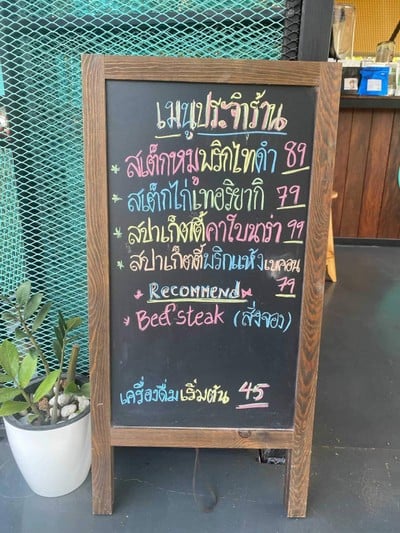 เมนูประจำร้าน
* สเต็กหมูพริกไทดำ 89
* สเต็กไก่เทอริยากิ 79
* สปาเก็ตตี้คาโบนาร่า 99
* สปาเก็ตตี้พริกแห้งเบคอน
79
* RECOMMEND *
* Beef steak (สั่งจอง)
เครื่องดื่มเริ่มต้น 45